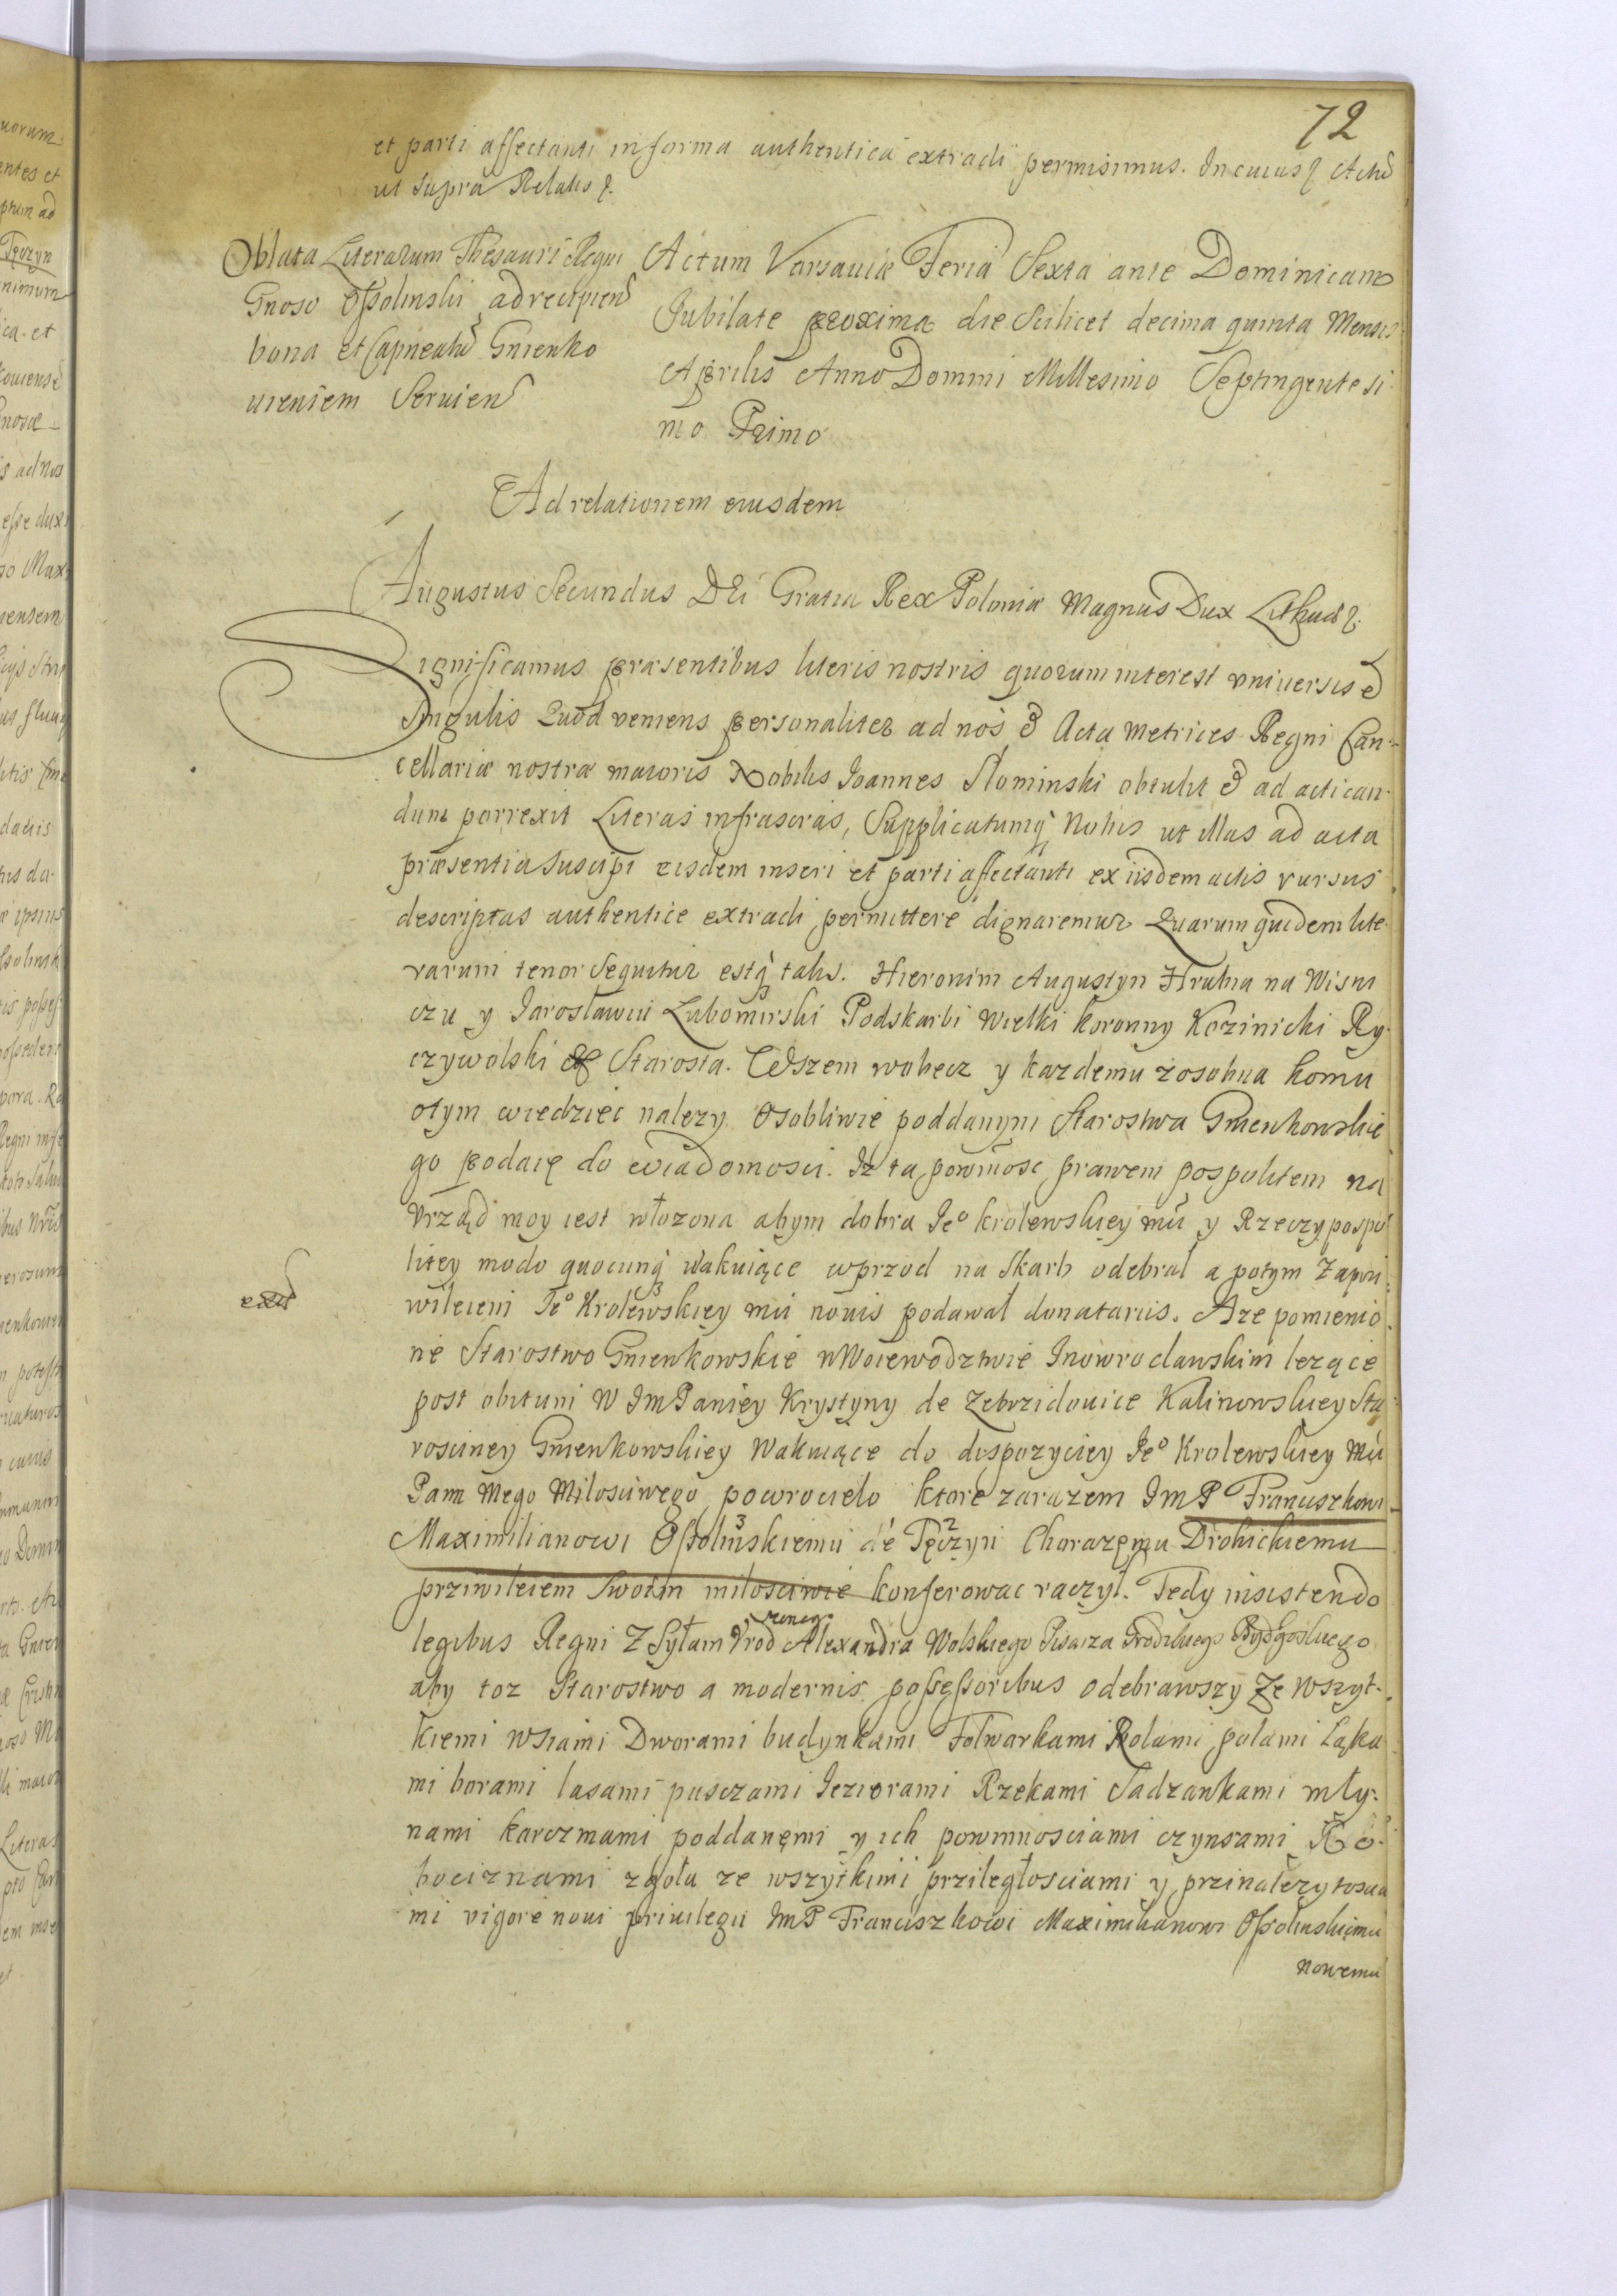 72
et parti affectanti in forma authentica extradi permisimus. In cuius Actu
ut supra Relatis
Oblata Literarum Thesauri Regni
Gnoso Ossolinski ad recipien
bona et Capneatu Gnienko
uiensem Seruien
Actum Varsauiæ Feria Sexta ante Dominicam
Jubilate proxima die Scilicet decima quinta Mensis
Aprilis Anno Domini Millesimo Septingentesi
mo Primo
Ad relationem eiusdem
Augustus Secundus DEi Gratia Rex Poloniæ Magnus Dux Lithuaæ
Significamus præsentibus literis nostris quorum interest vniuersis et
Singulis Quod veniens personaliter ad nos et Acta Metrices Regni Can-
cellariæ nostræ maioris Nobilis Joannes Słominski obtulit et ad actican-
dum porrexit Literas infrascras, Supplicatumq Nobis ut illas ad acta
præsentia suscipi eisdem inseri et parti affectanti ex iisdem actis rursus
descriptas authentice extradi permittere dignaremur Quarum quidem lite
rarum tenor sequitur estq talis. Hieronim Augustyn Hrabia na Wisni
czu y Jarosławiu Lubomirski Podskarbi Wielki Koronny Kozinicki Ry
czywolski Starosta. Wszem wobecz y kazdemu zosobna komu
otym wiedziec nalezy Osobliwie poddanym Starostwa Gnienkowskie
go podaię do wiadomosci. Iż ta powinosc prawem pospolitem na
Vrząd moy iest włozona abym dobra Jeo krolewskiey mci y Rzeczypospo
litey modo quocunq wakuiące wprzod na Skarb odebrał a potym Zapri
wileiem Jeo Krolewskiey mci nouis podawał donatariis. A ze pomienio
ne Starostwo Gnienkowskie w Woiewodztwie Inowrocławskim lezące
post obitum W JmPaniey Krystyny de Zebrzidouice Kalinowskiey Sta
rosciney Gnienkowskiey Wakuiące do dispozyciey Jeo Krolewskiey Mci
Pana Mego Miłosciwego powrocieło ktore zarazem JmP Franciszkowi
Maximilianowi Ossolinskiemu de Tęczyn Chorazemu Drohickiemu
prziwileiem Swoim miłosciwie konferowac raczył. Tedy insistendo
legibus Regni Z Syłam Vrod Alexandra Wolskiego Pisarza Grodzkiego Bydgoskiego
aby toz Starostwo a modernis possessoribus odebrawszy Ze Wszyt-
kiemi Wsiami Dworami budynkami Folwarkami Rolami polami Łąka
mi borami lasami pusczami Jeziorami Rzekami Sadzankami mły-
nami karczmami poddanemi y ich powinnosciami czynsami Ro-
bociznami zgoła ze wszytkimi prziległosciami y przinalezytoscia
mi vigore noui priuilegii JmP Franciszkowi Maximilianowi Ossolinskiemu
nowemu